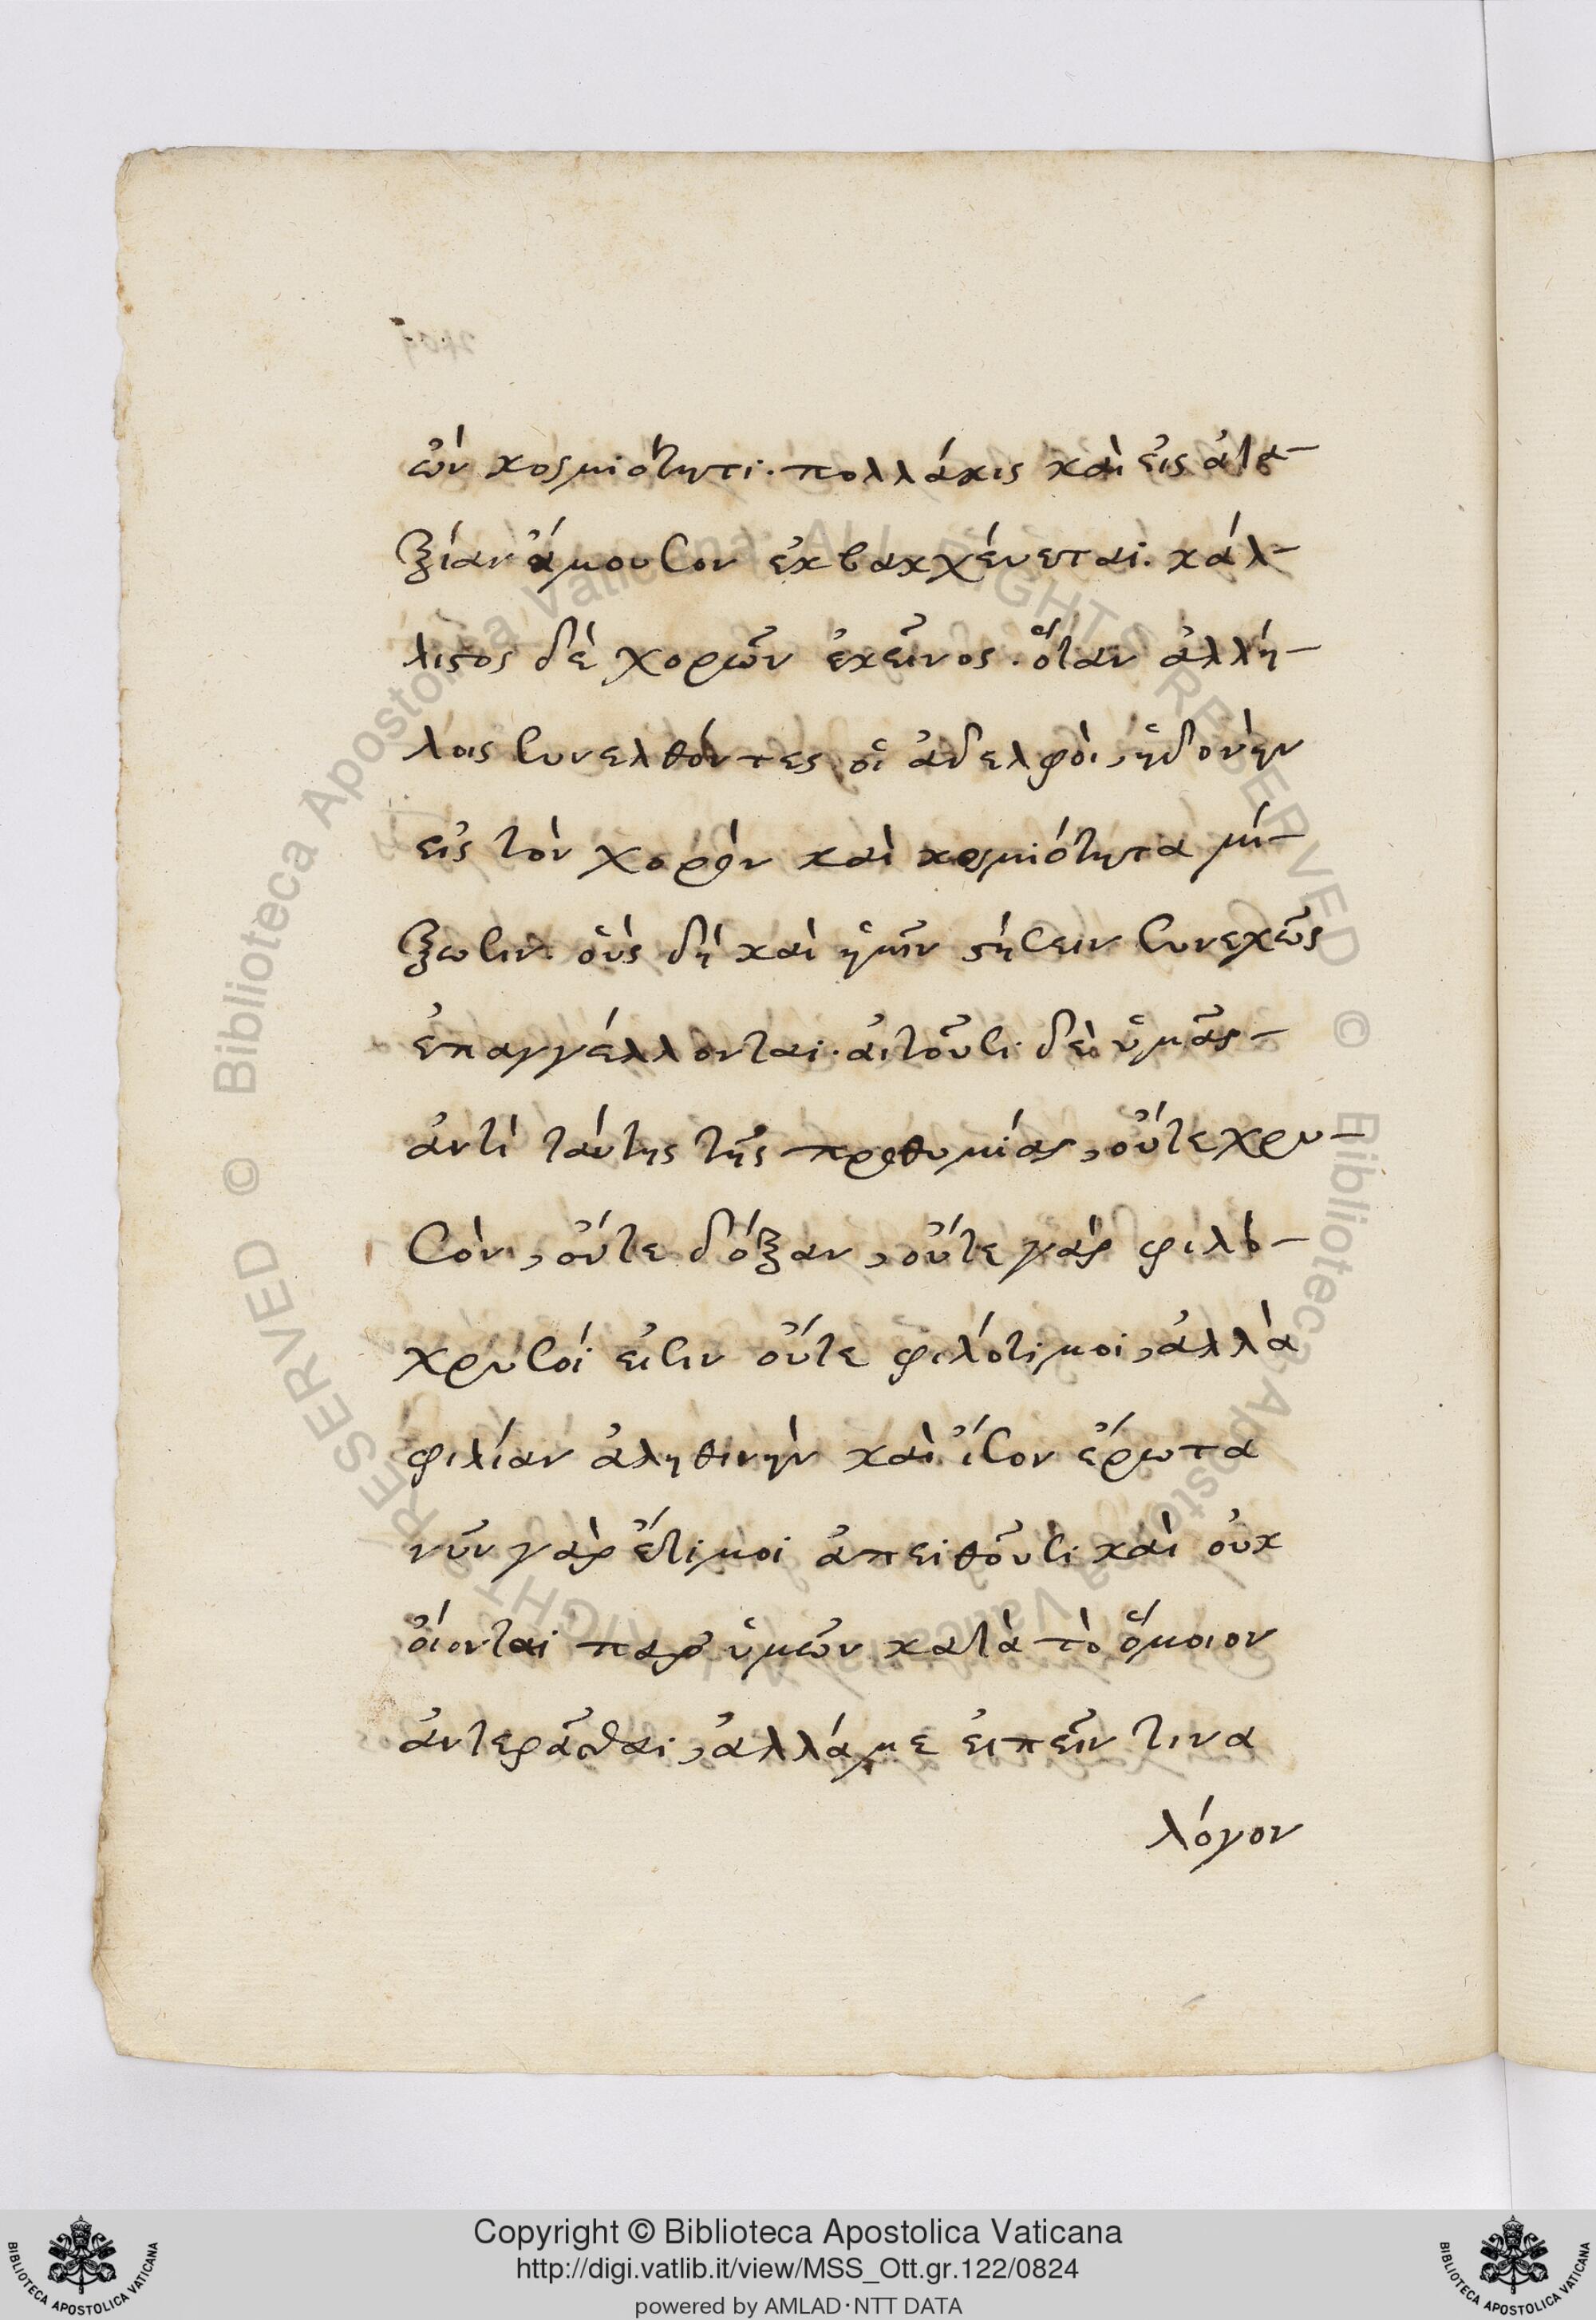 ὢν κοσμιότητι· πολλάκις καὶ εἰς ἀτα-
ξίαν ἄμουσον ἐκβακχέυεται· κάλ-
λιστος δὲ χορῶν ἐκεῖνος· ὅταν ἀλλή-
λοις συνελθόντες οἱ ἀδελφὸι, ἡδονὴν
εἰς τὸν χορὸν καὶ κοσμιότητα μί-
ξωσιν· οὓς δὴ καὶ ἡμῖν στήσειν συνεχῶς
ἐπαγγέλλονται· αἰτοῦσι δὲ ὑμᾶς-
ἀντὶ τάυτης τῆς προθυμίας, οὔτε χρυ-
σὸν, οὔτε δόξαν, οὔτε γὰρ φιλό-
χρυσοί εἰσιν οὔτε φιλότιμοι, ἀλλὰ
φιλίαν ἀληθινὴν καὶ ἴσον ἔρωτα
νῦν γὰρ ἔτι μοι ἀπειθοῦσι καὶ οὐκ
οἴονται παρ' ὑμῶν κατὰ τὸ ὅμοιον
ἀντερᾶσθαι, ἀλλά με εἰπεῖν τινα
λόγον
Copyright © Biblioteca Apostolica Vaticana
http://digi.vatlib.it/view/MSS_Ott.gr.122/0824
powered by AMLAD·NTT DATA